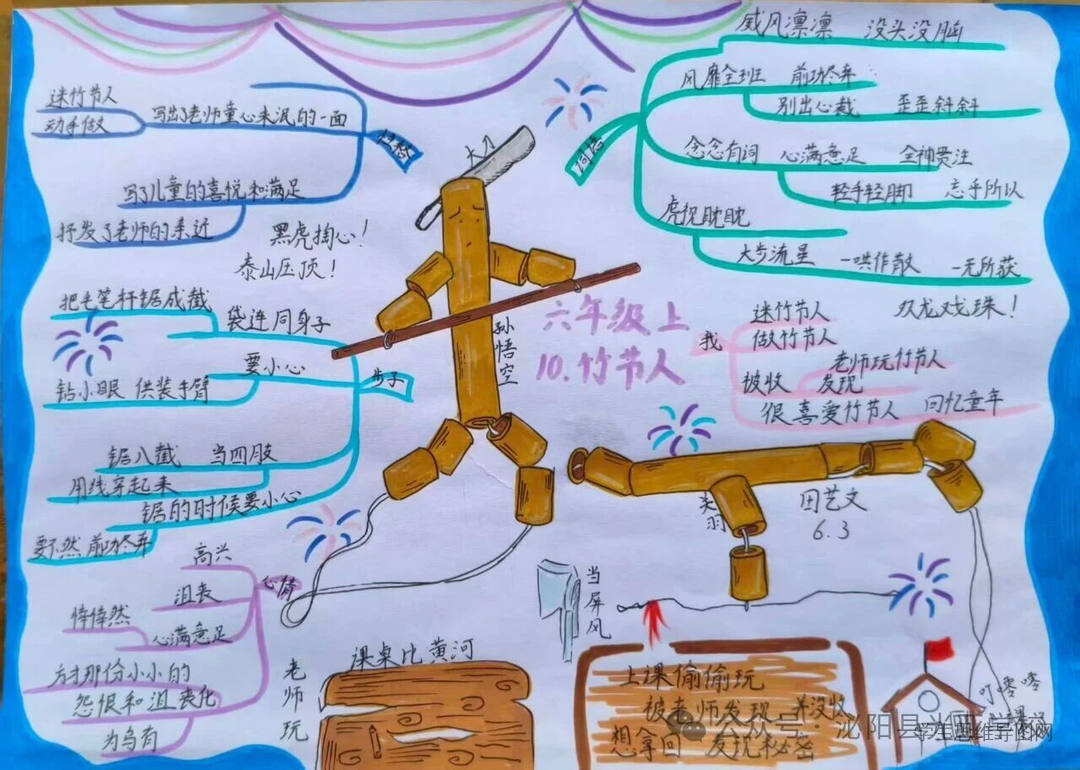 威风凛凛 没头没脑
风靡全班 前功尽弃
别出心裁 歪歪斜斜
念念有词 心满意足 全神贯注
轻手轻脚 忘乎所以
虎视眈眈
大步流星 一哄作散 一无所获
词语
迷竹节人
动手做
写出了老师童心未泯的一面
写了儿童的喜悦和满足
抒发了老师的亲近
大刀
黑虎掏心！
泰山压顶！
把毛笔杆锯成截
袋连同身子
要小心
钻小眼 供装手臂
步子
锯八截 当四肢
用线穿起来
锯的时候要小心
要不然前功尽弃
孙悟空
六年级上
10.竹节人
双龙戏珠！
我
迷竹节人
做竹节人
老师玩竹节人
被收 发现
很喜爱竹节人 回忆童年
关羽
田艺文
6.3
心情
高兴
沮丧
悻悻然
心满意足
方才那份小小的
怨恨和沮丧化
为乌有
老师玩
课桌比黄河
当屏风
上课偷偷玩
被老师发现 并没收
想拿回 发现秘密
叮零零
公众号
泌阳县
学生思维导图网